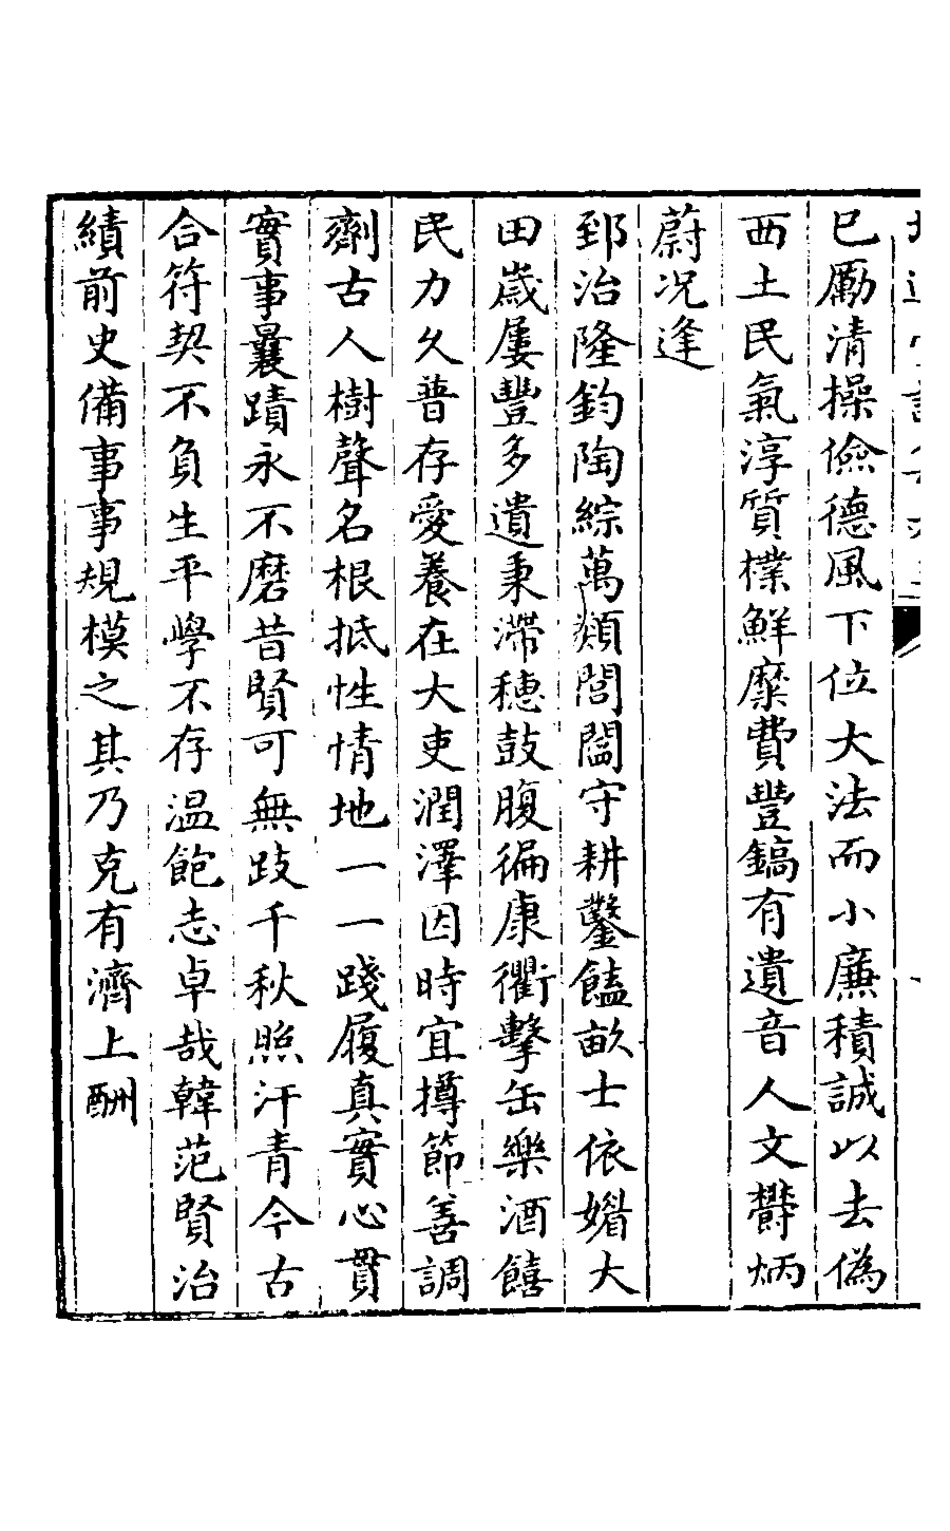 已勵清操儉德風下位大法而小廉積誠以去偽
西土民氣淳質樸鮮糜費豐鎬有遺音人文欝炳
蔚况逢
郅治隆鈞陶綜萬類閭閻守耕鑿饁畝士依媚大
田歲屢豐多遺秉滯穗鼓腹徧康衢擊缶樂酒饎
民力久普存愛養在大吏潤澤因時宜撙節善調
劑古人樹聲名根抵性情地一一踐履真實心貫
實事曩蹟永不磨昔賢可無跂千秋照汗青今古
合符契不負生平學不存温飽志卓哉韓范賢治
績前史備事事規模之其乃克有濟上酬